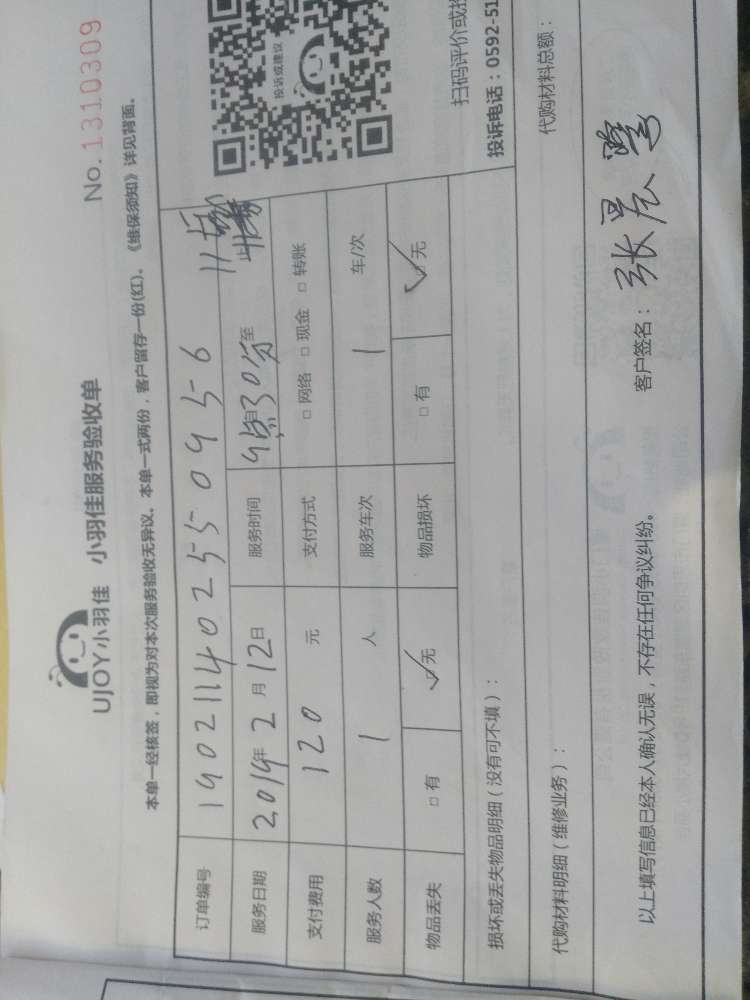 No.1310309
UJOY小羽佳 小羽佳服务验收单
本单一经核签，即视为对本次服务验收无异议。本单一式两份，客户留存一份(红)。《维保须知》详见背面。
订单编号 190211402550956
服务日期 2019年 2 月 12日 服务时间 9点30分至 11点 止
支付费用 120 元 支付方式 □ 网络 □ 现金 □ 转账
服务人数 1 人 服务车次 1 车/次
物品丢失 □ 有 ✓无 物品损坏 □ 有 ✓无
投诉或建议
扫码评价或投
投诉电话：0592-51
损坏或丢失物品明细（没有可不填）：
代购材料明细（维修业务）： 代购材料总额：
以上填写信息已经本人确认无误，不存在任何争议纠纷。 客户签名：张晨